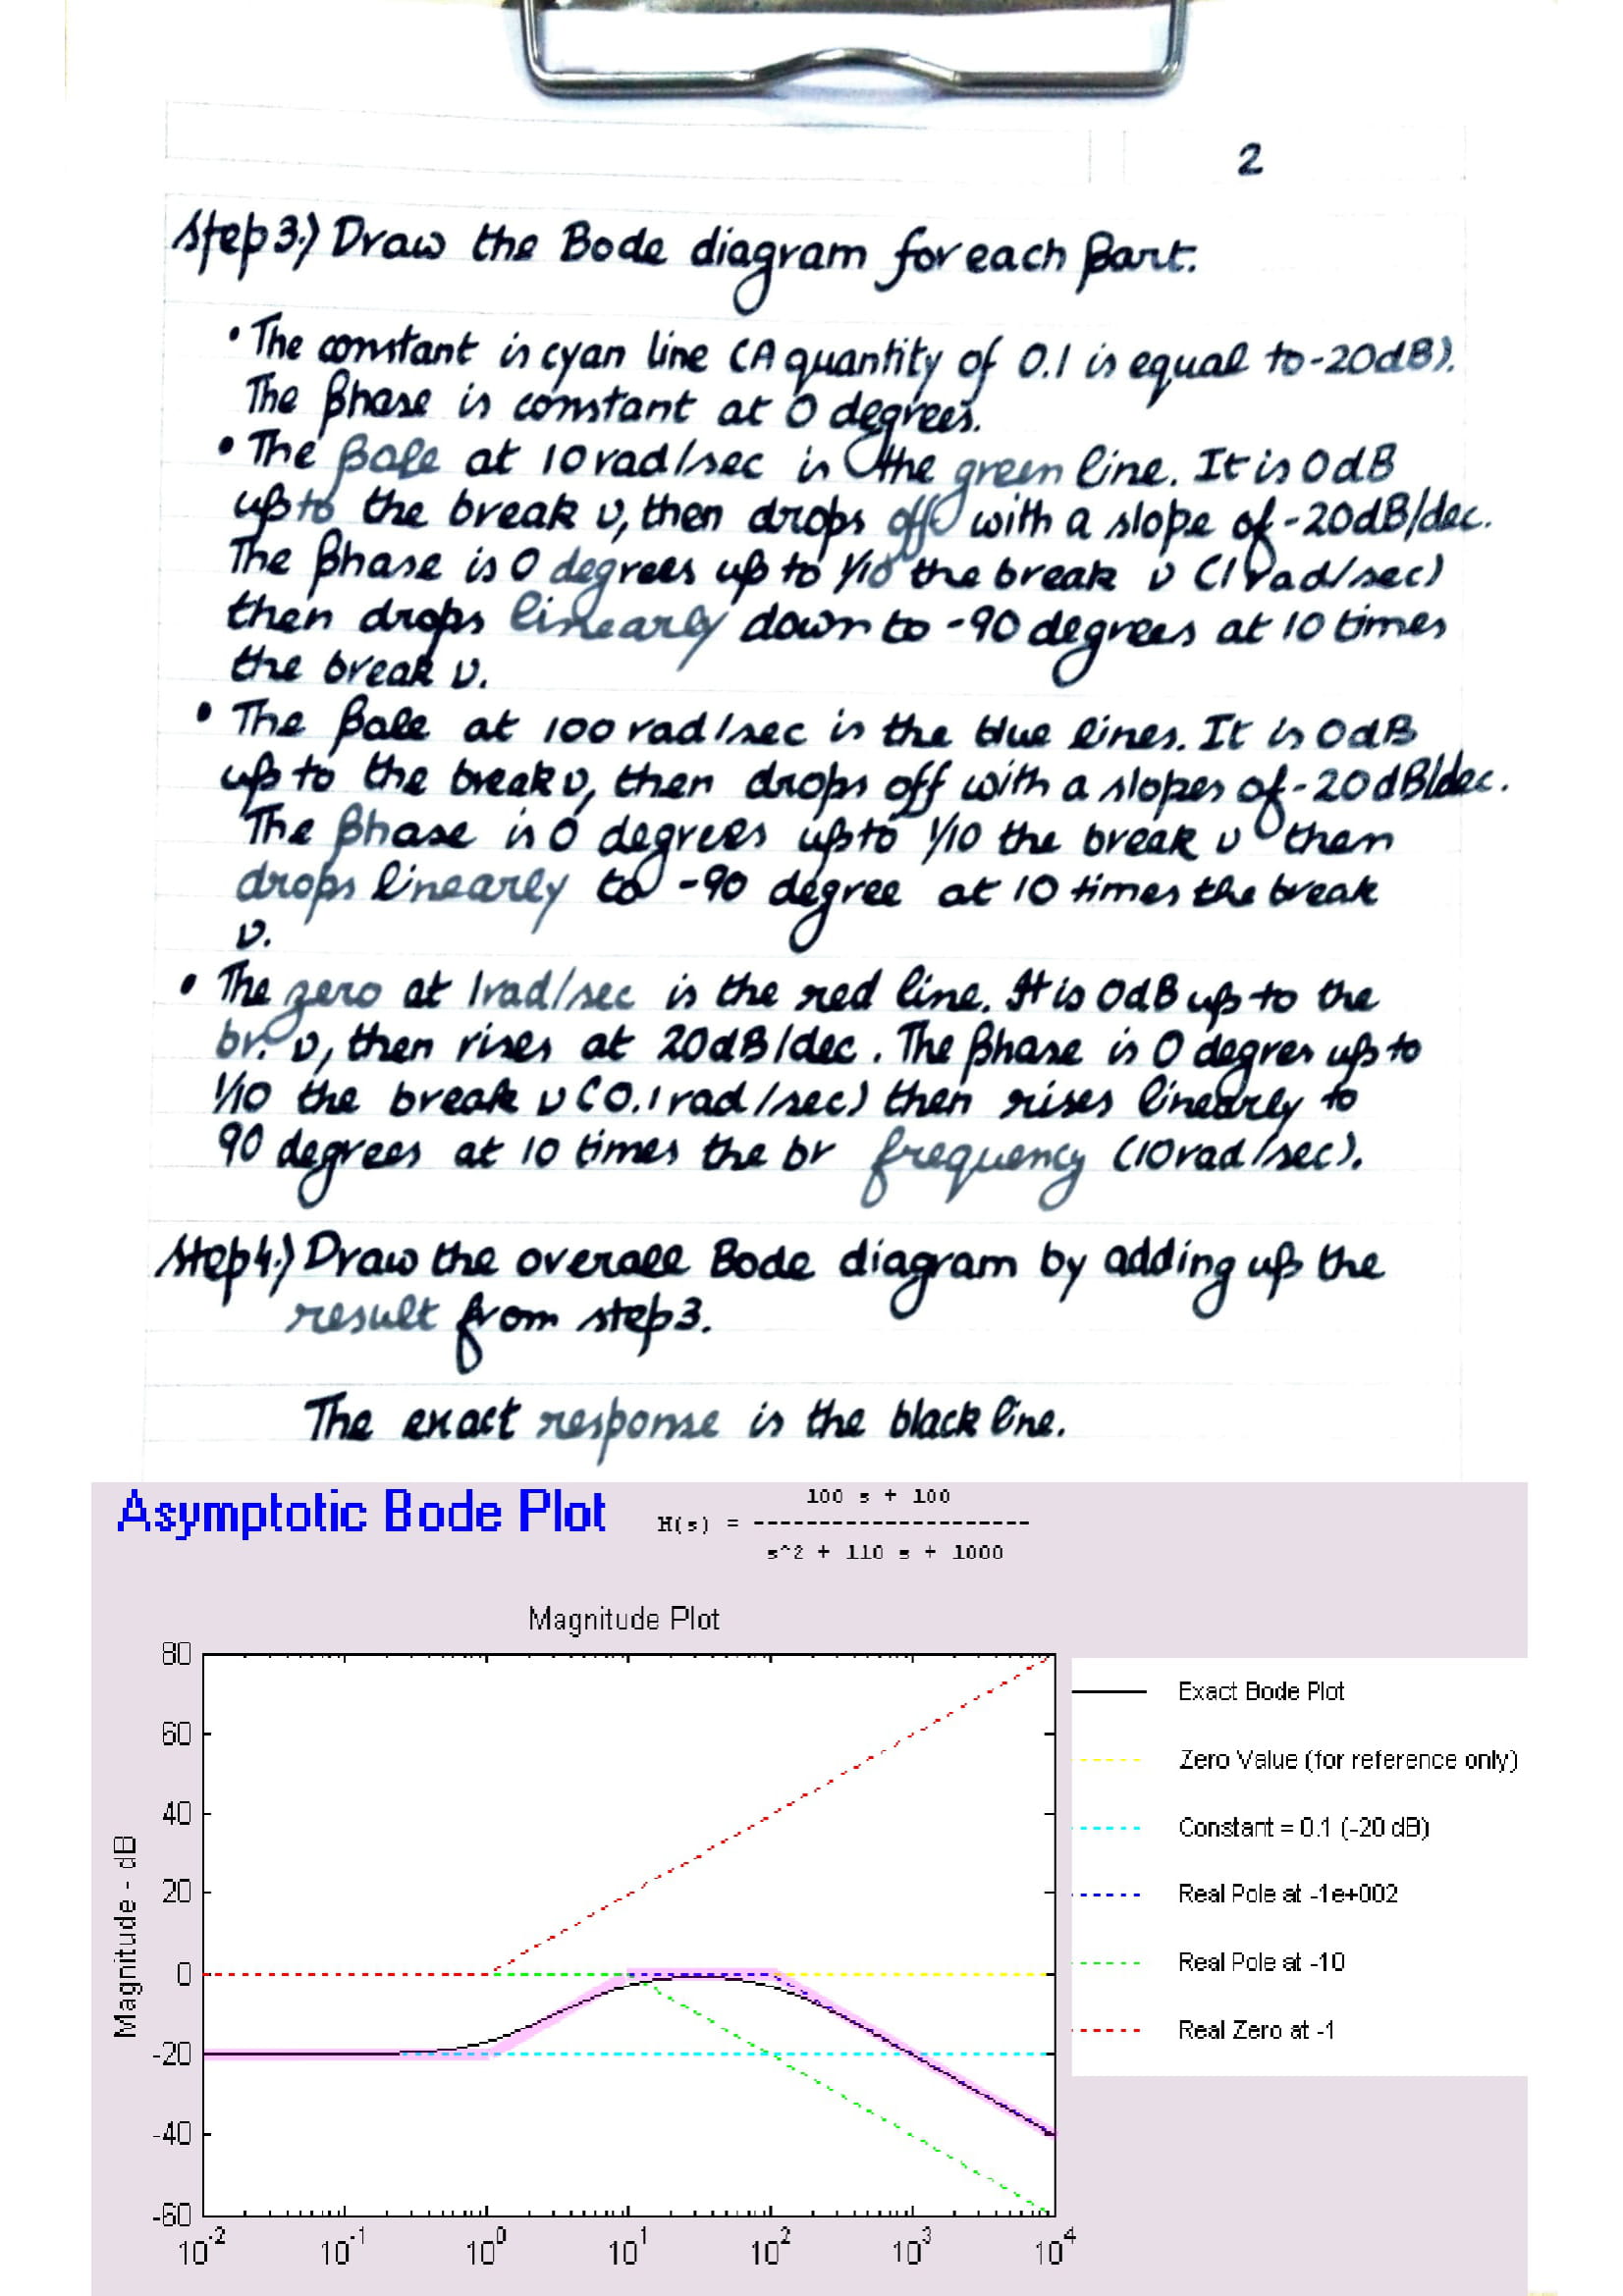 2
Step 3.) Draw the Bode diagram for each part.
• The constant is cyan line (A quantity of 0.1 is equal to -20dB).
The phase is constant at 0 degrees.
• The pole at 10 rad/sec is the green line. It is 0 dB
up to the break ν, then drops off with a slope of -20dB/dec.
The phase is 0 degrees up to 1/10 the break ν (1 rad/sec)
then drops linearly down to -90 degrees at 10 times
the break ν.
• The pole at 100 rad/sec is the blue lines. It is 0dB
up to the break ν, then drops off with a slopes of -20dB/dec.
The phase is 0 degrees upto 1/10 the break ν then
drops linearly to -90 degree at 10 times the break
ν.
• The zero at 1rad/sec is the red line. It is 0dB up to the
br. ν, then rises at 20dB/dec. The phase is 0 degres up to
1/10 the break ν (0.1 rad/sec) then rises linearly to
90 degrees at 10 times the br frequency (10rad/sec).
Step 4.) Draw the overall Bode diagram by adding up the
result from step 3.
The exact response is the black line.
Asymptotic Bode Plot
100 s + 100
H(s) = ---------------------
s^2 + 110 s + 1000
Magnitude Plot
Magnitude - dB
80
60
40
20
0
-20
-40
-60
10^-2 10^-1 10^0 10^1 10^2 10^3 10^4
Exact Bode Plot
Zero Value (for reference only)
Constant = 0.1 (-20 dB)
Real Pole at -1e+002
Real Pole at -10
Real Zero at -1